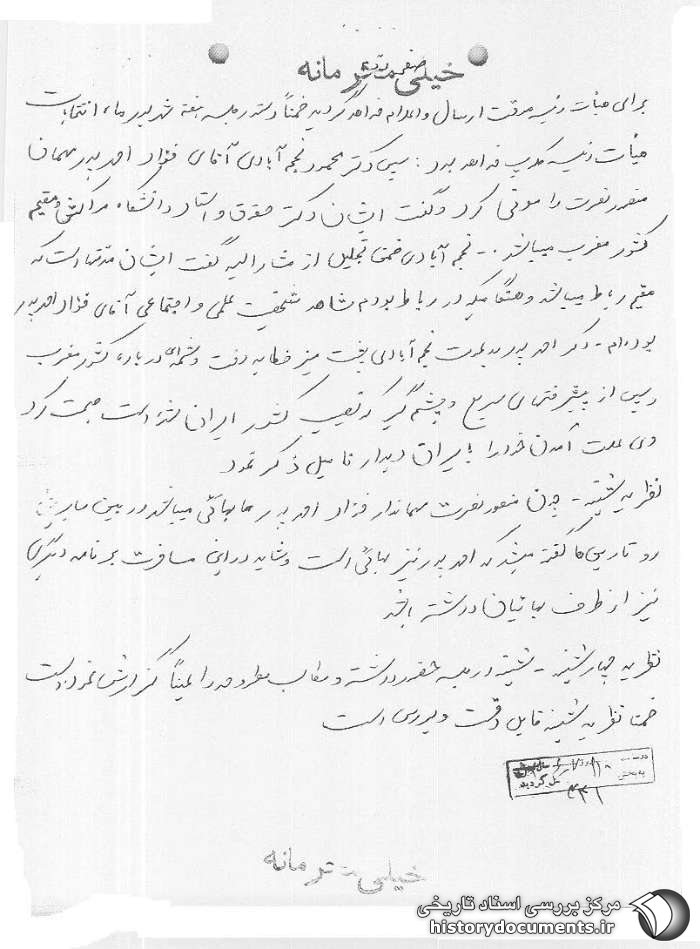 خیلی محرمانه
صفحه دوم
برای هیأت رئیسه موقت ارسال و اعلام خواهد گردید ضمناً دستور جلسه هفته شهریور ماه انتخابات
هیأت رئیسه کلوپ خواهد بود : سپس دکتر محمود نجم آبادی آقای فؤاد احمدپور مهمان
منصور نصرت را معرفی کرد و گفت ایشان دکتر حقوق و استاد دانشگاه مراکش و مقیم
کشور مغرب میباشد . - نجم آبادی ضمن تجلیل از مشارالیه گفت ایشان مدتها است که
مقیم رباط میباشد و هنگامیکه در رباط بودم شاهد شخصیت علمی و اجتماعی آقای فؤاد احمدپور
بوده‌ام - دکتر احمدپور بدعوت نجم آبادی پشت میز خطابه رفت و شمه‌ای درباره کشور مغرب
و پس از پیشرفتهای سریع و چشم گیر که نصیب کشور ایران شده است صحبت کرد
وی علت آمدن خود را بایران دیدار فامیل ذکر نمود
نظریه شنبه - چون منصور نصرت مهماندار فؤاد احمدپور بهائی میباشد در بین سایرین
روتارین‌ها گفته میشد که احمدپور نیز بهائی است و شاید در این مسافرت برنامه دیگری
نیز از طرف بهائیان داشته باشد
نظریه چهارشنبه - شنبه در جلسه حضور داشته و مطالب مطروحه را عیناً گزارش نموده است
ضمناً نظریه شنبه قابل دقت و بررسی است
گردید
۴۳۱
خیلی محرمانه
مرکز بررسی اسناد تاریخی
historydocuments.ir